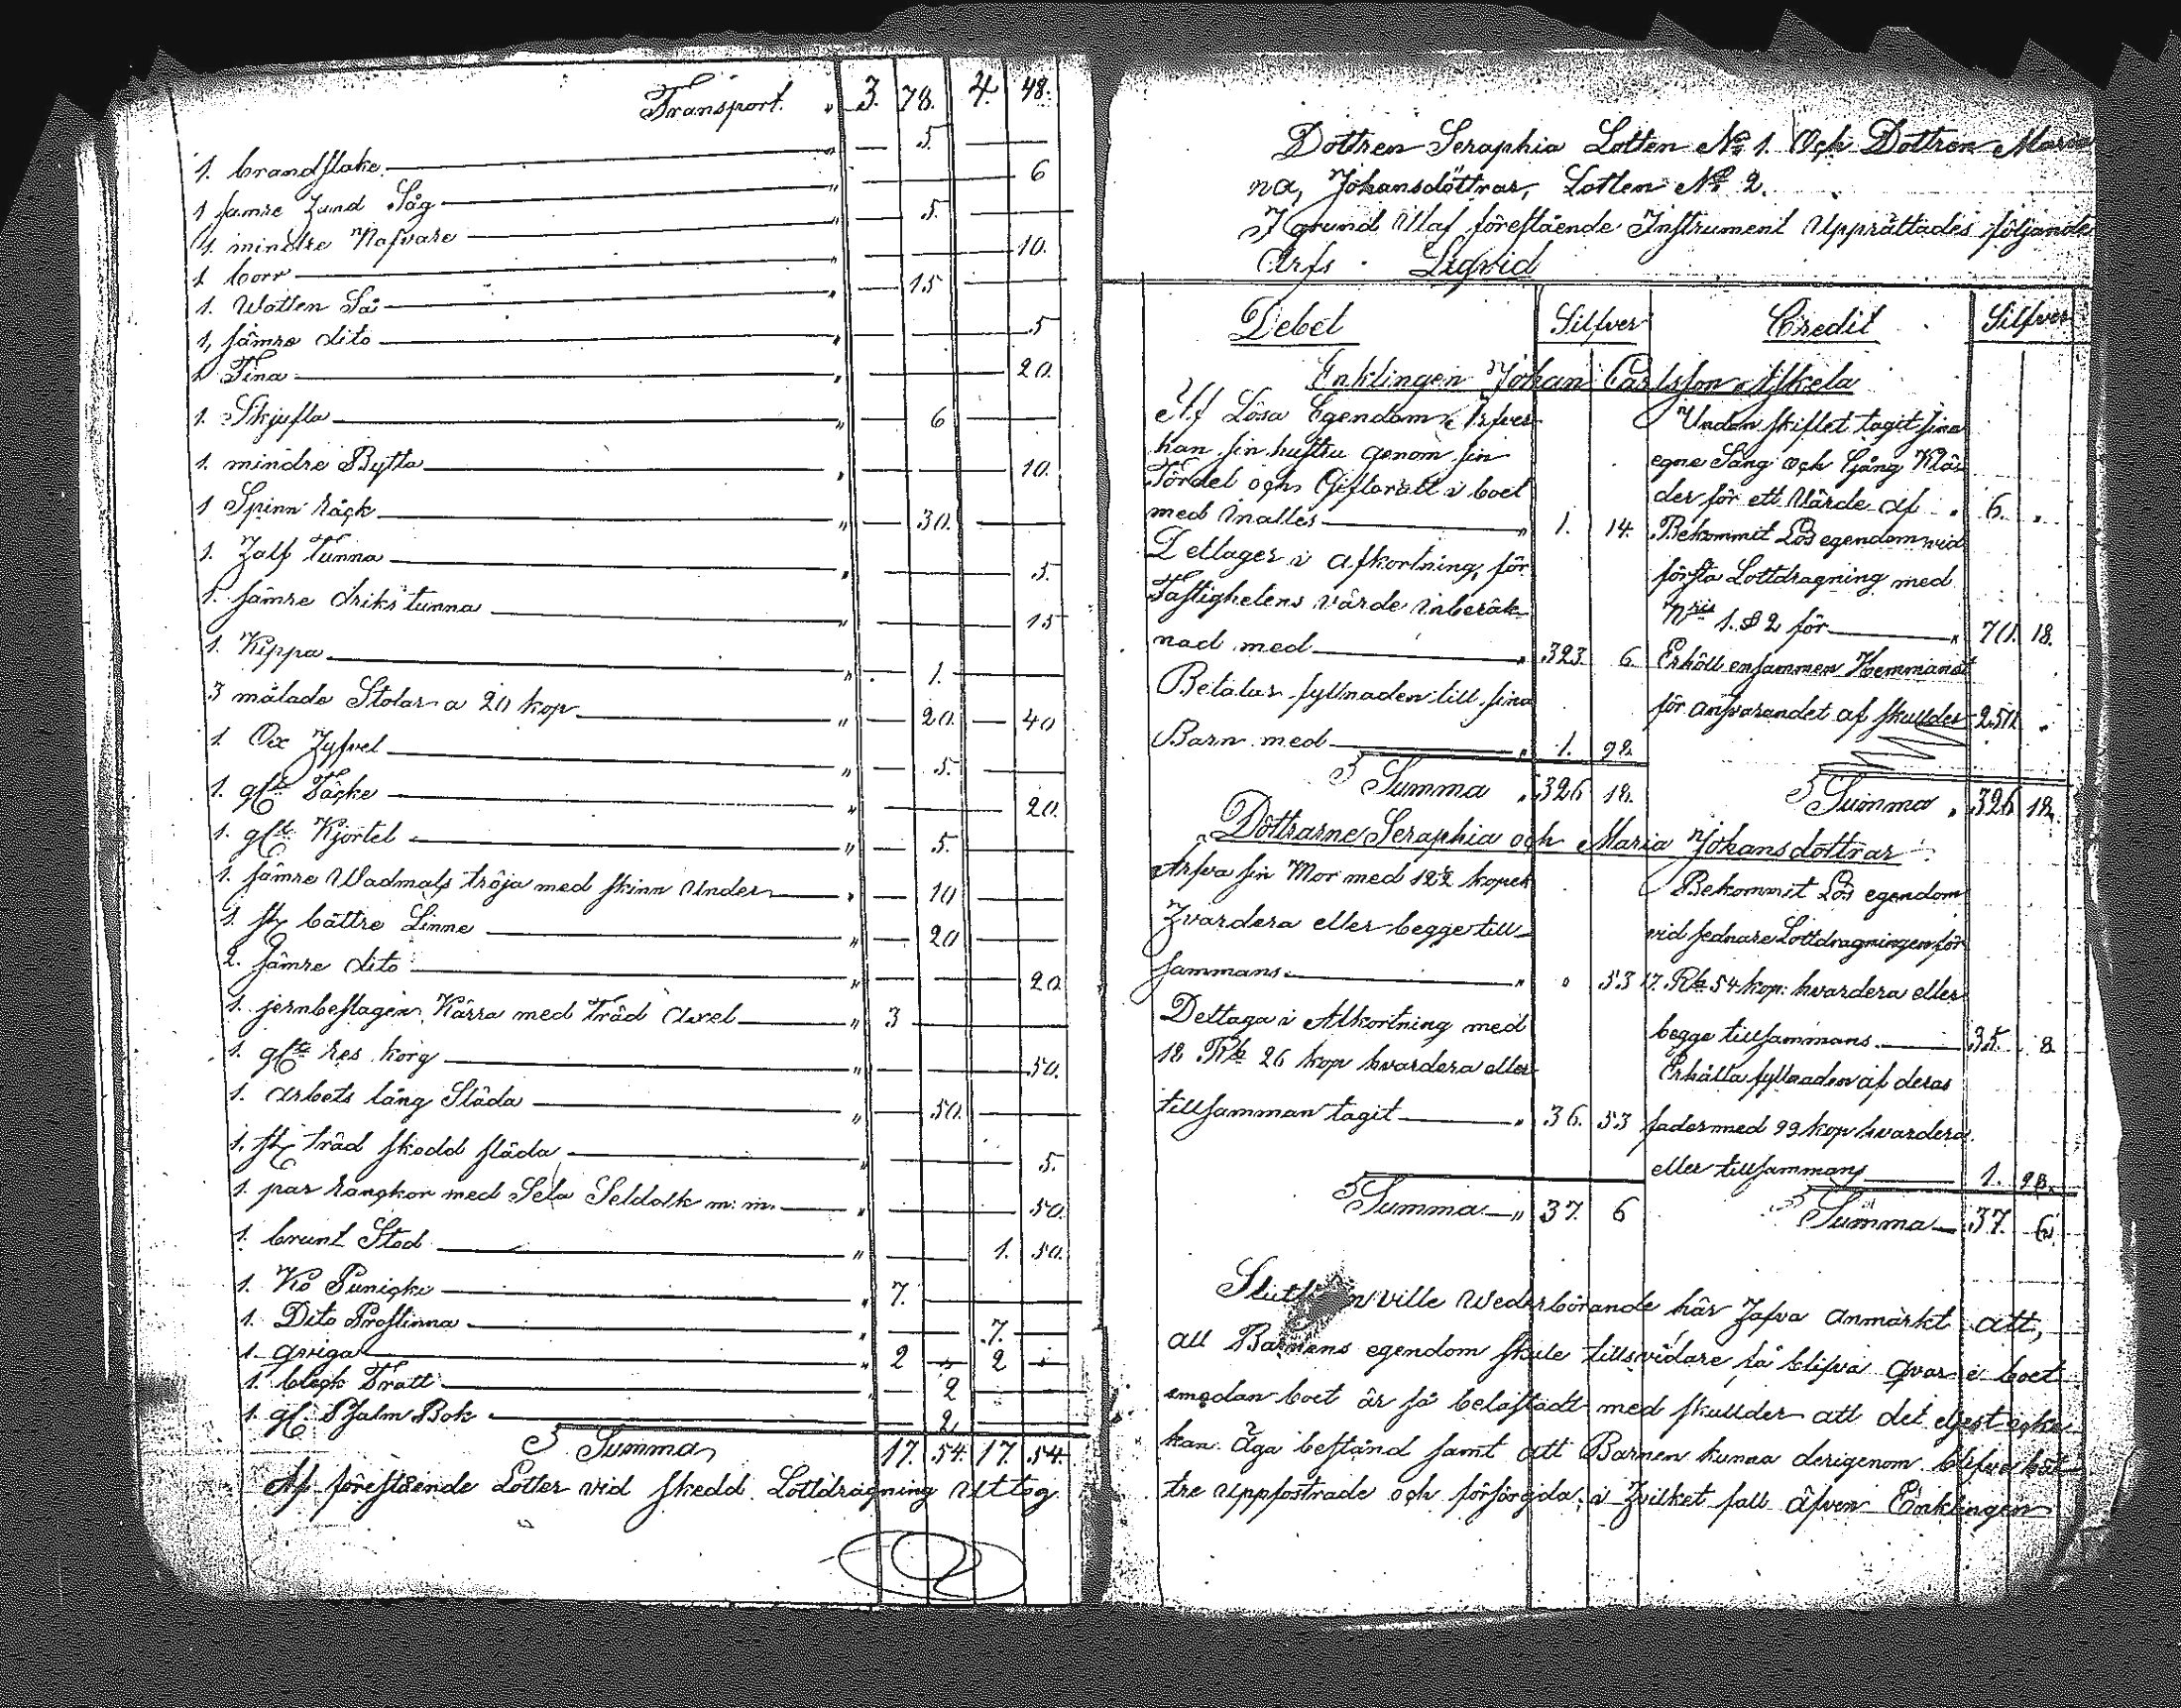 Transport. " 3. 78. 4. 48.
1. brandstake " — 5. —
1 sämre Zand Såg " — — 6
1. mindre Nafvare " — 5. —
1 borr " — — 10.
1. Watten Så " — 15 —
1, sämre dito " — — 5
1 Tina " — — 20.
1. Skjufla " — 6 —
1. mindre Bytta " — — 10.
1 Spinn räck " — 30. —
1. Zalf Tunna " — — 5.
1. sämre driks tunna " — — 15
1. Kippa " — 1. —
3 målade Stolar a 20 kop " — 20. — 40
1. Ox Zyfvel " — 5. —
1. glt Täcke " — — 20.
1. glt Kjortel " — 5. —
1. sämre Wadmals tröja med skinn Under " — 10 —
1. st bättre Linne " — 20 —
2. sämre dito " — — 20
1. jernbeslagen Kärra med Träd Axel " 3 —
1. glt res korg " — — 50.
1. arbets lång Släda " — 50. —
1. st träd skodd släda " — — 5.
1. par rankor med Sela Seldolk m: m. " — — 50.
1. brunt Stod " — 1. 50.
1. Ko Punicke " 7. —
1. Dito Prostinna " — 7. —
1. qviga " 2 — 2 —
1. bleck Tratt " — 2
1. gl. Psalm Bok — 2
Summa 17. 54. 17. 54.
Af förestående Lotter vid skedd Lottdragning Uttog
Dottren Seraphia Lotten No 1. Och Dottren Maria
na, Johansdöttrar, Lotten No 2.
I grund Utaf förestående Instrument Upprättades följande
Arfs Liqvid
Debet Silfver Credit Silfver
Enklingen Johan Carlsson Askela
Af Lösa Egendom Erfver
han sin hustru genom sin
Fördel och Giftorätt i boet
med inalles " 1. 14.
Deltager i afkortning för
Fastighetens värde inberäk
nad med " 323. 6
Betalar fyllnaden till sina
Barn med " 1. 98.
Summa " 326 18.
Undan skiftet tagit sina
egne Säng och Gång Klä
der för ett Värde af " 6. "
Bekommit Lös egendom wid
första Lottdragning med
Nris 1. & 2 för " 70. 18.
Erhåll ensammen Hemmanet
för ansvarandet af skullder 250. "
Summa " 326 18.
Döttrarne Seraphia och Maria Johansdöttrar
Arfva sin Mor med 12½ kopek
Zvardera eller begge till
sammans " " 53
Deltaga i Afkortning med
18 Rb 26 kop hvardera eller
tillsamman tagit " 36. 53
Summa " 37. 6
Bekommit Lös egendom
vid sednare Lottdragningen för
17. Rb 54 kop: hvardera eller
begge tillsammans 35. 8
Erhålla fyllnaden af deras
fader med 99 kop hvardera
eller tillsammans 1. 98.
Summa 37. 6.
ville Wederbörande här Zafva Anmärkt att,
att Barnens egendom skule tillsvidare få blifva qvar i boet
emedan boet är så belastadt med skullder att det eljest icke
kan äga bestånd samt att Barnen kunna derigenom blifva bät
tre Uppfostrade och försörgda, i Zvilket fall äfven Enklingen